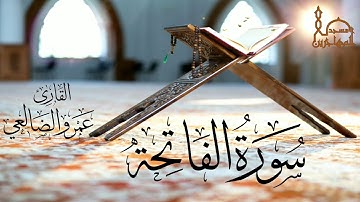 القارئ
عمرو الصالحي
سُورَةُ الفَاتِحَة
مسجد